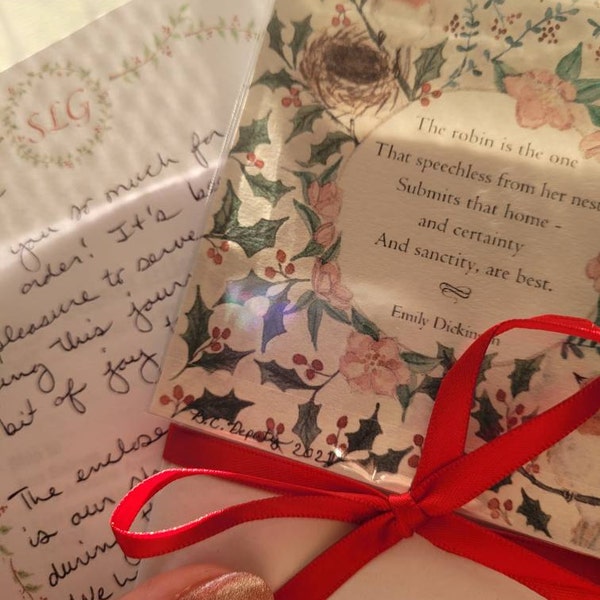 SLG
you so much for
order! It's be
pleasure to serve
ing this jour
bit of joy
The enclose
is our
during
The robin is the one
That speechless from her nest
Submits that home -
and certainty
And sanctity, are best.
Emily Dickinson